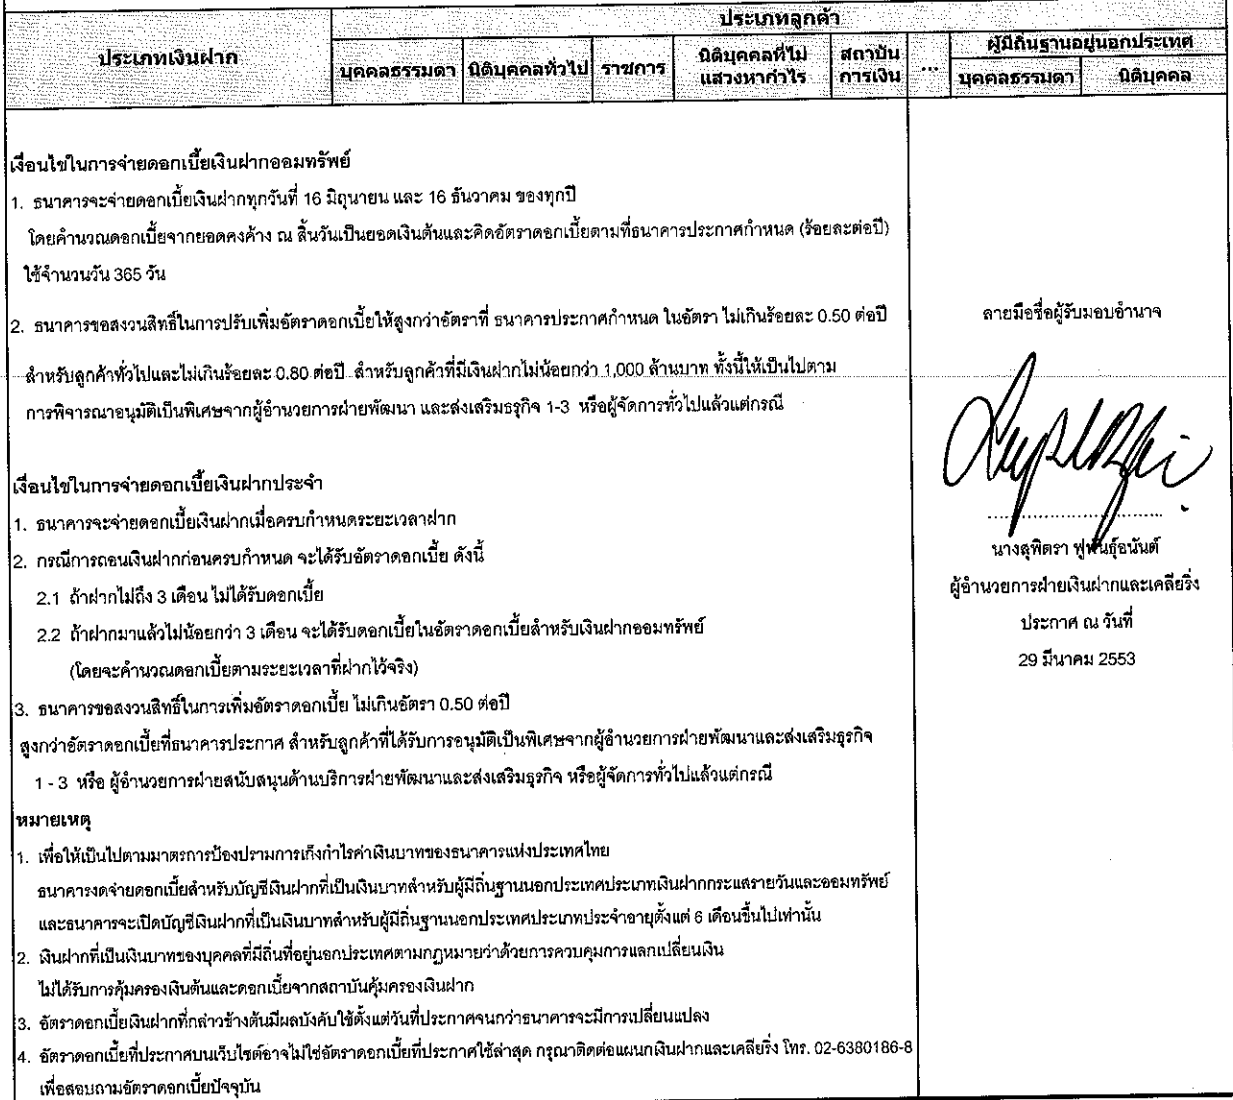 ประเภทเงินฝาก
ประเภทลูกค้า
บุคคลธรรมดา นิติบุคคลทั่วไป ราชการ นิติบุคคลที่ไม่แสวงหากำไร สถาบันการเงิน ... ผู้มีถิ่นฐานอยู่นอกประเทศ
บุคคลธรรมดา นิติบุคคล
เงื่อนไขในการจ่ายดอกเบี้ยเงินฝากออมทรัพย์
1. ธนาคารจะจ่ายดอกเบี้ยเงินฝากทุกวันที่ 16 มิถุนายน และ 16 ธันวาคม ของทุกปี
โดยคำนวณดอกเบี้ยจากยอดคงค้าง ณ สิ้นวันเป็นยอดเงินต้นและคิดอัตราดอกเบี้ยตามที่ธนาคารประกาศกำหนด (ร้อยละต่อปี)
ใช้จำนวนวัน 365 วัน
2. ธนาคารขอสงวนสิทธิ์ในการปรับเพิ่มอัตราดอกเบี้ยให้สูงกว่าอัตราที่ ธนาคารประกาศกำหนด ในอัตรา ไม่เกินร้อยละ 0.50 ต่อปี
สำหรับลูกค้าทั่วไปและไม่เกินร้อยละ 0.80 ต่อปี สำหรับลูกค้าที่มีเงินฝากไม่น้อยกว่า 1,000 ล้านบาท ทั้งนี้ให้เป็นไปตาม
การพิจารณาอนุมัติเป็นพิเศษจากผู้อำนวยการฝ่ายพัฒนา และส่งเสริมธรุกิจ 1-3 หรือผู้จัดการทั่วไปแล้วแต่กรณี
เงื่อนไขในการจ่ายดอกเบี้ยเงินฝากประจำ
1. ธนาคารจะจ่ายดอกเบี้ยเงินฝากเมื่อครบกำหนดระยะเวลาฝาก
2. กรณีการถอนเงินฝากก่อนครบกำหนด จะได้รับอัตราดอกเบี้ย ดังนี้
2.1 ถ้าฝากไม่ถึง 3 เดือน ไม่ได้รับดอกเบี้ย
2.2 ถ้าฝากมาแล้วไม่น้อยกว่า 3 เดือน จะได้รับดอกเบี้ยในอัตราดอกเบี้ยสำหรับเงินฝากออมทรัพย์
(โดยจะคำนวณดอกเบี้ยตามระยะเวลาที่ฝากไว้จริง)
3. ธนาคารขอสงวนสิทธิ์ในการเพิ่มอัตราดอกเบี้ย ไม่เกินอัตรา 0.50 ต่อปี
สูงกว่าอัตราดอกเบี้ยที่ธนาคารประกาศ สำหรับลูกค้าที่ได้รับการอนุมัติเป็นพิเศษจากผู้อำนวยการฝ่ายพัฒนาและส่งเสริมธุรกิจ
1 - 3 หรือ ผู้อำนวยการฝ่ายสนับสนุนด้านบริการฝ่ายพัฒนาและส่งเสริมธุรกิจ หรือผู้จัดการทั่วไปแล้วแต่กรณี
หมายเหตุ
1. เพื่อให้เป็นไปตามมาตรการป้องปรามการเก็งกำไรค่าเงินบาทของธนาคารแห่งประเทศไทย
ธนาคารงดจ่ายดอกเบี้ยสำหรับบัญชีเงินฝากที่เป็นเงินบาทสำหรับผู้มีถิ่นฐานนอกประเทศประเภทเงินฝากกระแสรายวันและออมทรัพย์
และธนาคารจะเปิดบัญชีเงินฝากที่เป็นเงินบาทสำหรับผู้มีถิ่นฐานนอกประเทศประเภทประจำอายุตั้งแต่ 6 เดือนขึ้นไปเท่านั้น
2. เงินฝากที่เป็นเงินบาทของบุคคลที่มีถิ่นที่อยู่นอกประเทศตามกฎหมายว่าด้วยการควบคุมการแลกเปลี่ยนเงิน
ไม่ได้รับการคุ้มครองเงินต้นและดอกเบี้ยจากสถาบันคุ้มครองเงินฝาก
3. อัตราดอกเบี้ยเงินฝากที่กล่าวข้างต้นมีผลบังคับใช้ตั้งแต่วันที่ประกาศจนกว่าธนาคารจะมีการเปลี่ยนแปลง
4. อัตราดอกเบี้ยที่ประกาศบนเว็บไซต์อาจไม่ใช่อัตราดอกเบี้ยที่ประกาศใช้ล่าสุด กรุณาติดต่อแผนกเงินฝากและเคลียริ่ง โทร. 02-6380186-8
เพื่อสอบถามอัตราดอกเบี้ยปัจจุบัน
ลายมือชื่อผู้รับมอบอำนาจ
นางสุพิตรา ฟูพันธุ์อนันต์
ผู้อำนวยการฝ่ายเงินฝากและเคลียริ่ง
ประกาศ ณ วันที่
29 มีนาคม 2553